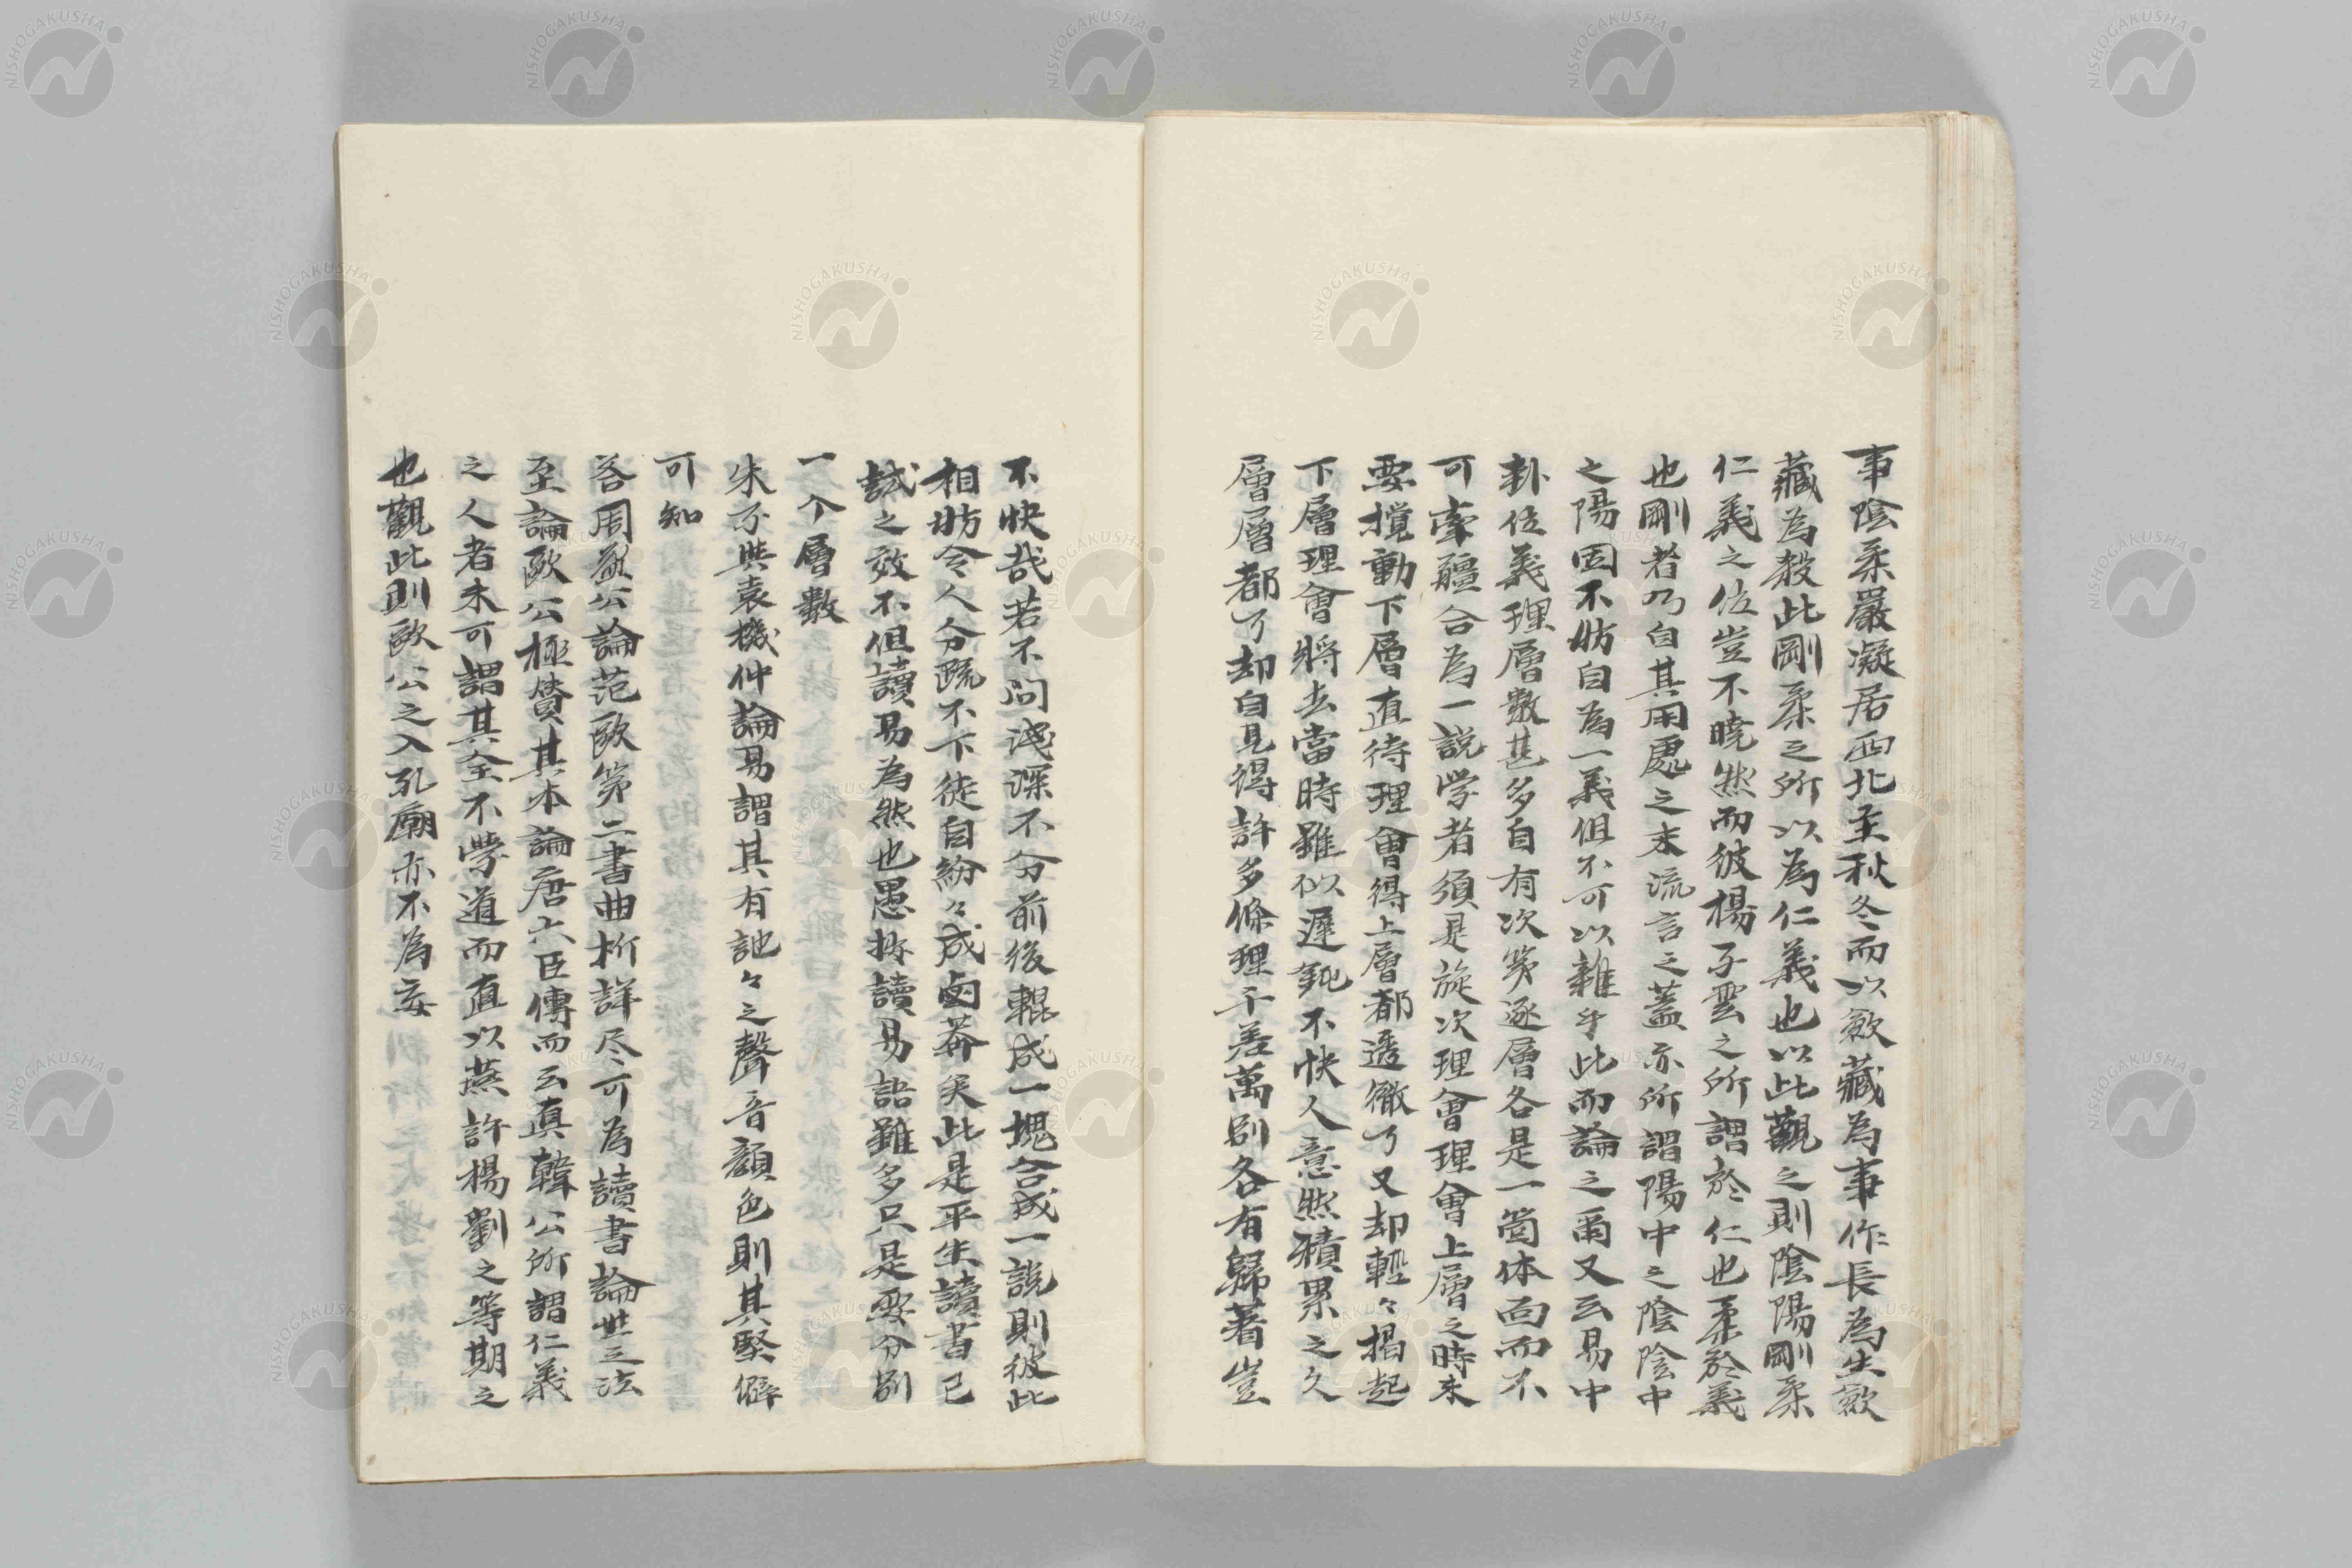 事陰柔嚴凝居西北主秋冬而以斂藏為事作長為生斂
藏為殺此剛柔之所以為仁義也以此觀之則陰陽剛柔
仁義之位豈不曉然而彼楊子雲之所謂於仁也柔於義
也剛者乃自其用處之末流言之蓋亦所謂陽中之陰陰中
之陽固不妨自為一義但不可以雜乎此而論之爾又云易中
卦位義理層數甚多自有次第逐層各是一箇体面而不
可牽彊合為一説学者須是旋次理會理會上層之時未
要攪動下層直待理會得上層都透徹了又却輕々揭起
下層理會將去當時雖似遲鈍不快人意然積累之久
層層都了却自見得許多條理千差萬別各有歸著豈
不快哉若不问淺深不分前後輥成一塊合成一說則彼此
相妨令人分䟽不下徒自紛々成鹵莽矣此是平生讀書已
試之效不但讀易為然也愚按讀易語雖多只是要分別
一个層數
朱子與袁機仲論易謂其有訑々之聲音顏色則其堅僻
可知
答周益公論范歐第二書曲折詳尽可為讀書論世之法
至論歐公極賛其本論唐六臣傳而云真韓公所謂仁義
之人者未可謂其全不學道而直以燕許楊劉之等期之
也觀此則歐公之入孔廟亦不為妄
NISHOGAKUSHA